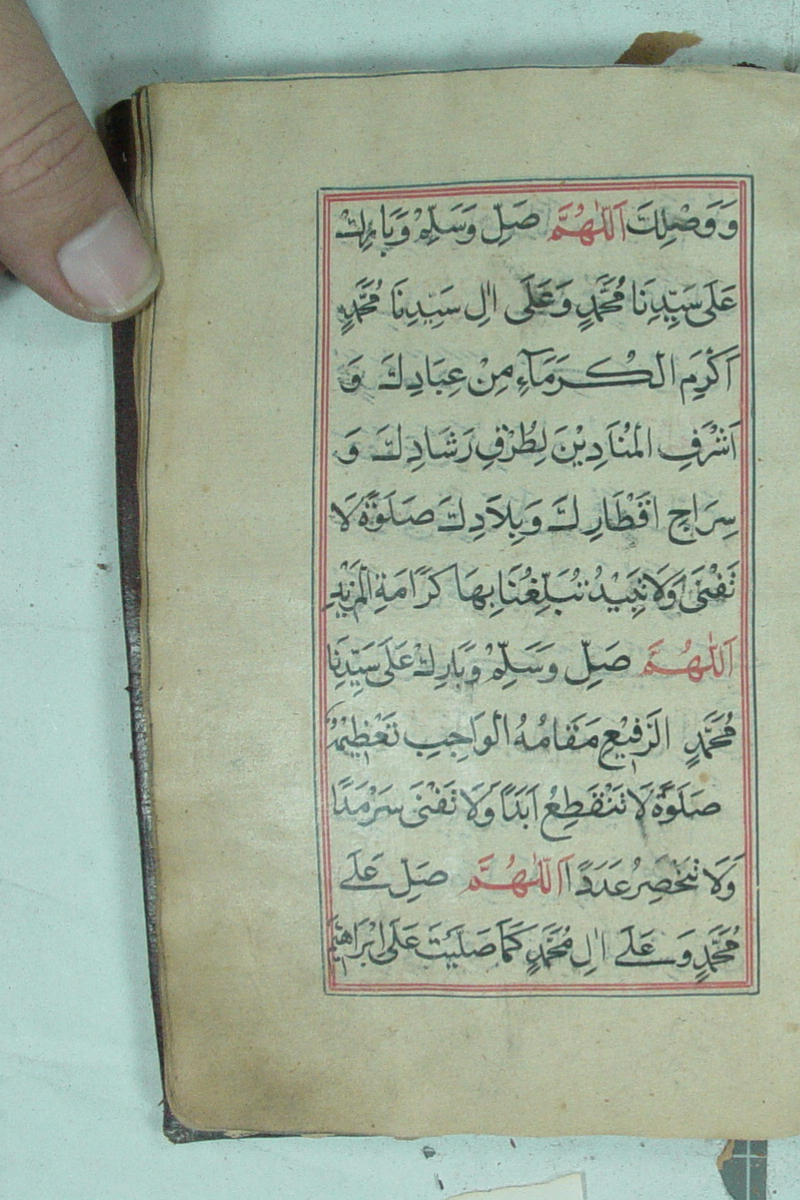 وَوَصْلِكَ اَللّٰهُمَّ صَلِّ وَسَلِّمْ وَبَارِكْ
عَلَى سَيِّدِنَا مُحَمَّدٍ وَعَلَى اٰلِ سَيِّدِنَا مُحَمَّدٍ
اَكْرَمِ الْكُرَمَآءِ مِنْ عِبَادِكَ وَ
اَشْرَفِ الْمُنَادِيْنَ لِطُرُقِ رَشَادِكَ وَ
سِرَاجِ اَقْطَارِكَ وَبِلَادِكَ صَلٰوةً لَا
تَفْنَى وَلَا تَبِيْدُ تُبَلِّغُنَا بِهَا كَرَامَةَ الْمَزِيْدِ
اَللّٰهُمَّ صَلِّ وَسَلِّمْ وَبَارِكْ عَلَى سَيِّدِنَا
مُحَمَّدٍ الرَّفِيْعِ مَقَامُهُ الْوَاجِبِ تَعْظِيْمُهُ
صَلٰوةً لَا تَنْقَطِعُ اَبَدًا وَلَا تَفْنَى سَرْمَدًا
وَلَا تَنْحَصِرُ عَدَدًا اَللّٰهُمَّ صَلِّ عَلَى
مُحَمَّدٍ وَعَلَى اٰلِ مُحَمَّدٍ كَمَا صَلَّيْتَ عَلَى اِبْرَاهِيْمَ